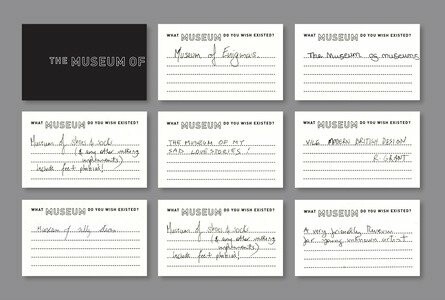 THE MUSEUM OF
WHAT MUSEUM DO YOU WISH EXISTED?
Museum of Enigmas.
WHAT MUSEUM DO YOU WISH EXISTED?
The Museum of museums
WHAT MUSEUM DO YOU WISH EXISTED?
Museum of shoes & socks
(& any other walking
implements)
Include foot photos!
WHAT MUSEUM DO YOU WISH EXISTED?
THE MUSEUM OF MY
SAD LOVE STORIES!
WHAT MUSEUM DO YOU WISH EXISTED?
MODERN BRITISH DESIGN
R. GRANT
WHAT MUSEUM DO YOU WISH EXISTED?
Museum of silly ideas
WHAT MUSEUM DO YOU WISH EXISTED?
Museum of shoes & socks
(& any other walking
implements)
Include foot photos!
WHAT MUSEUM DO YOU WISH EXISTED?
A very friendly Museum
for young unknown artist